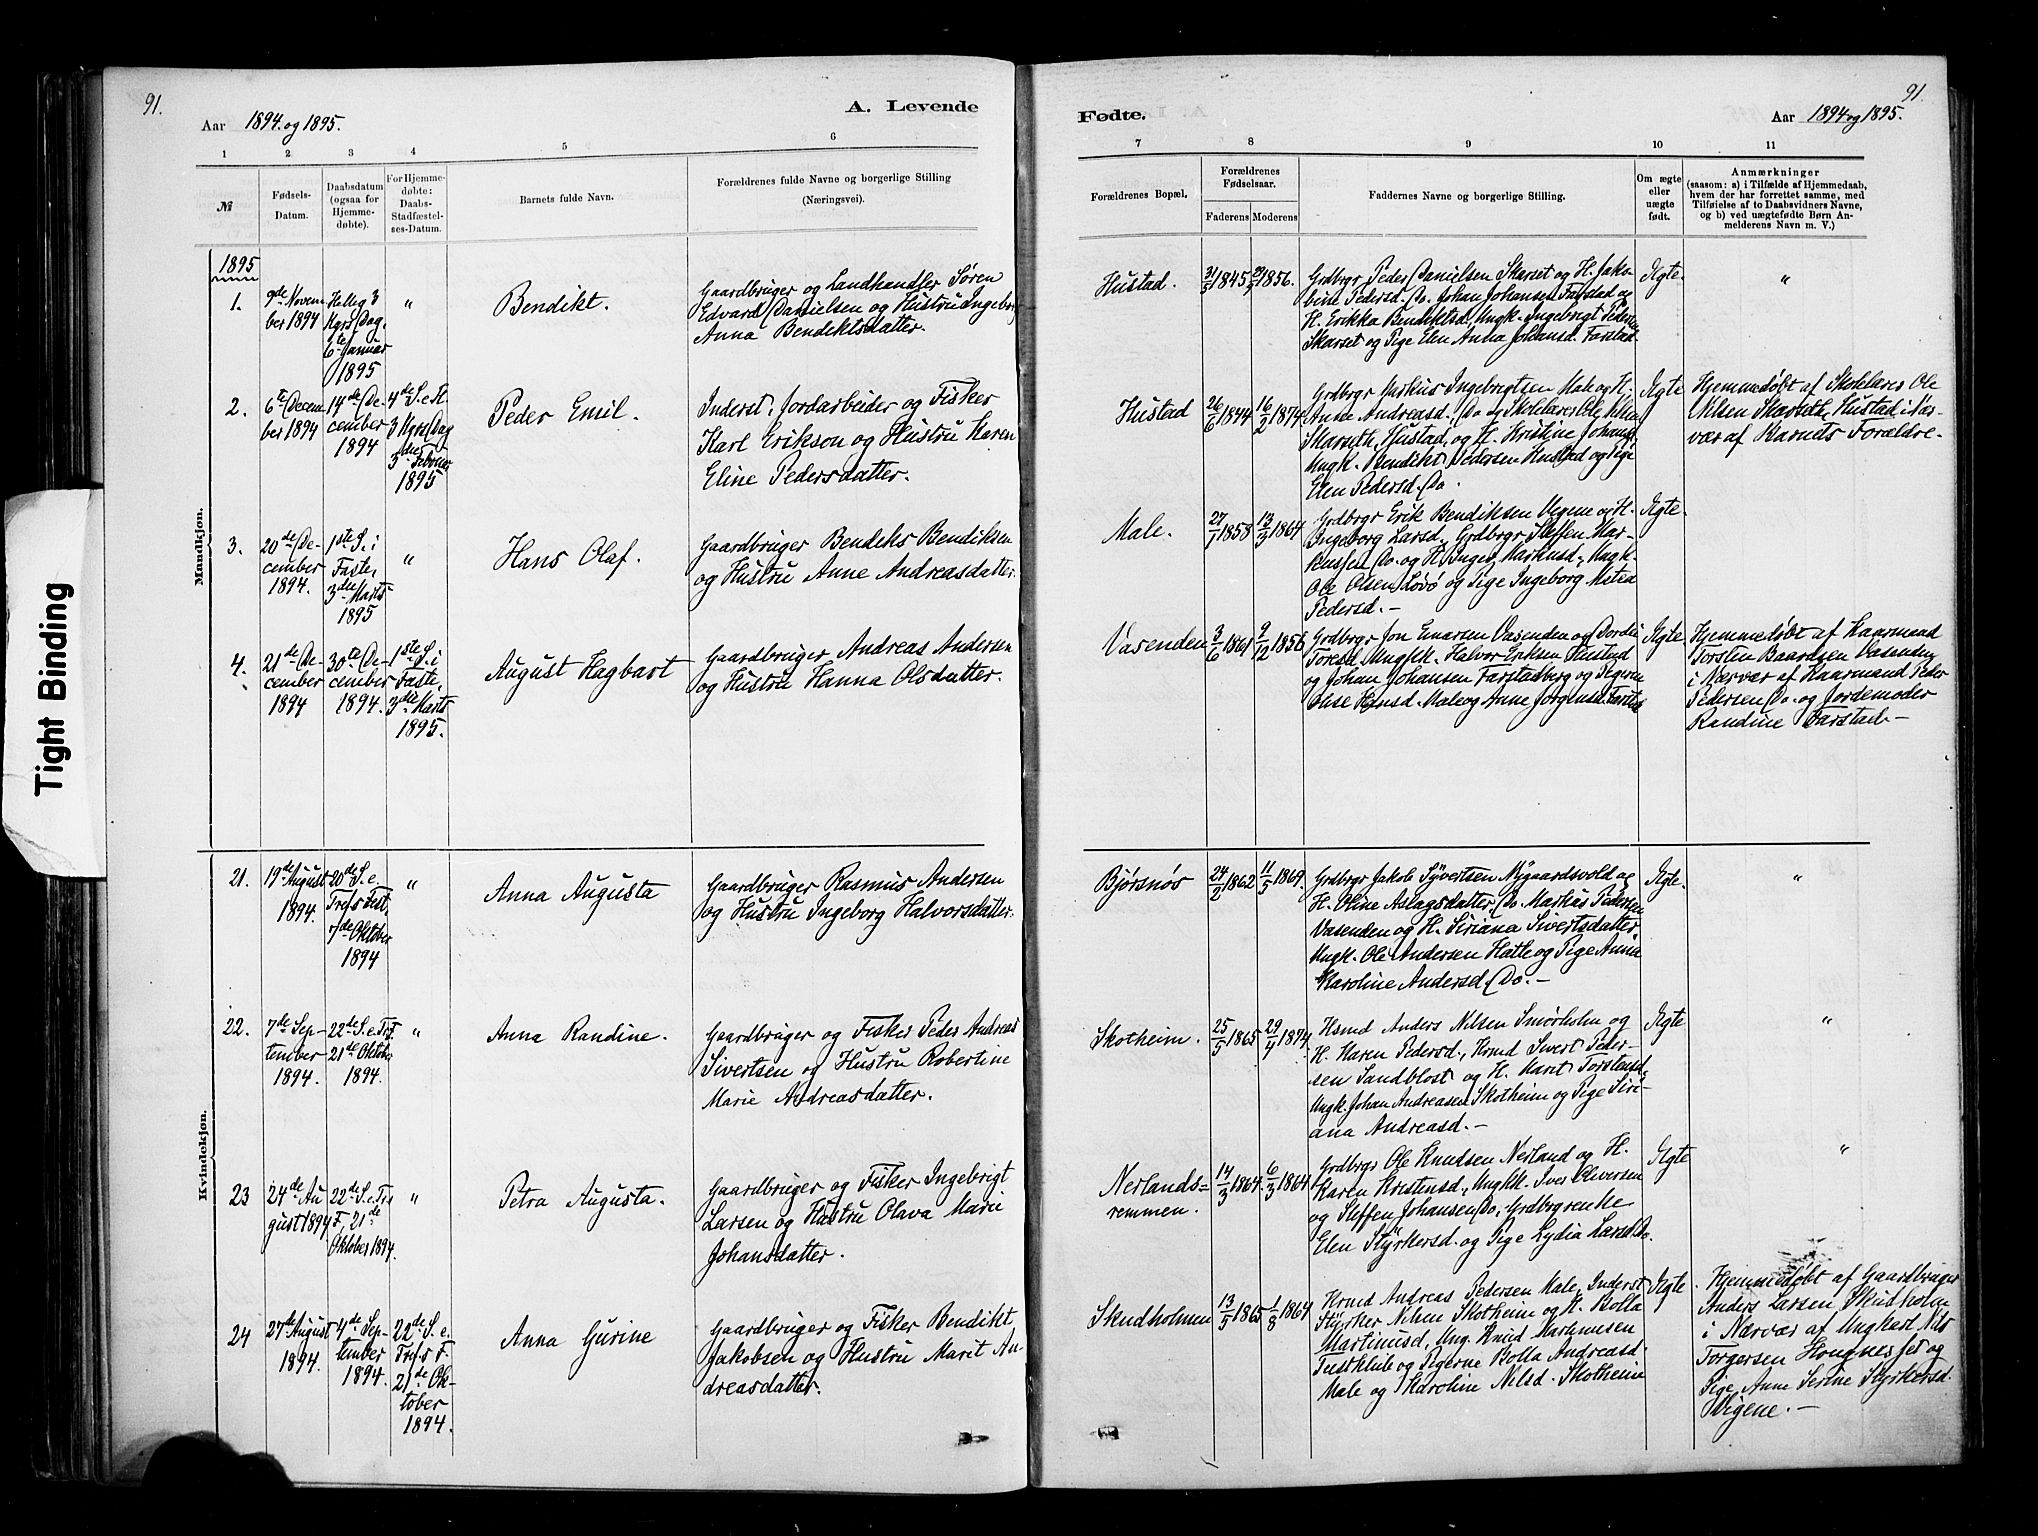 91.
91.
Aar 1894. og 1895.
A. Levende
Fødte.
Aar 1894 og 1895.
1 2 3 4 5 6
7 8 9 10 11
№
Fødsels-
Datum.
Daabsdatum
(ogsaa for
Hjemme-
døbte).
For Hjemme-
døbte:
Daabs-
Stadfæstel-
ses-Datum.
Barnets fulde Navn.
Forældrenes fulde Navne og borgerlige Stilling
(Næringsvei).
Forældrenes Bopæl.
Forældrenes
Fødselsaar.
Faderens Moderens
Faddernes Navne og borgerlige Stilling.
Om ægte
eller
uægte
født.
Anmærkninger
(saasom: a) i Tilfælde af Hjemmedaab,
hvem der har forrettet samme, med
Tilføielse af to Daabsvidners Navne,
og b) ved uægtefødte Børn An-
melderens Navn m. V.)
Mandkjøn.
1895
1.
9de Novem
ber 1894
Hellig 3
Kgrs Dag
6te Januar
1895
"
Bendikt.
Gaardbruger og Landhandler Søren
Edvard Danielsen og Hustru Ingeborg
Anna Bendiktsdatter.
Hustad.
31/5 1845
1856.
Grdbrgr Peder Danielsen Skarset og H. Jako-
bine Pedersd. Do. Johan Johansen Farstad og
H. Erikka Bendiktsd., Ungk. Ingebrigt Peders
Skarset og Pige Elen Anna Johansd. Farstad.
Ægte.
"
2.
6te Decem
ber 1894
14de De-
cember
1894
4de S. e. H
3 Kgrs Dag
3die Februar
1895
Peder Emil.
Inderst, Jordarbeider og Fisker
Karl Erikson og Hustru Karen
Eline Pedersdatter.
Hustad
26/6 1844
16/2 1874
Grdbrgr Markus Ingebrigtsen Male og H.
Anne Andreasd. Do., Skolelærer Ole Nilsen
Skarseth, Hustad, og H. Kristine Johansd.
Ungk. Bendikt Pedersen Hustad og Pige
Elen Pedersd. Do.
Ægte
Hjemmedøbt af Skolelærer Ole
Nilsen Skarseth, Hustad i Nær-
vær af Barnets Forældre.
3.
20de De-
cember
1894.
1ste S. i
Faste,
3die Marts
1895
"
Hans Olaf.
Gaardbruger Bendiks Bendiksen
og Hustru Anne Andreasdatter.
Male.
27/1 1858
13/3 1864
Grdbrgr Erik Bendiksen Vegene og H.
Ingeborg Larsd., Grdbrgr Steffen Mar-
kussen Do. og H. Inger Markusd., Ungk.
Ole Olsen Løvø og Pige Ingeborg Metea
Pedersd. —
Ægte.
4.
21de De-
cember
1894
30te De-
cember
1894.
1ste S. i
Faste,
3die Marts
1895.
August Hagbart
Gaardbruger Andreas Andersen
og Hustru Hanna Olsdatter.
Vasenden
3/6 1861
9/12 1856
Grdbrgr Jon Einarsen Vasenden og Dordei
Toresd., Ungk. Halvor Eriksen Hustad
og Johan Johansen Farstadberg og Pigerne
Olise Hansd. Male og Anne Jørgensd. Farstad
Ægte
Hjemmedøbt af Kaarmand
Torsten Baardsen Vasenden
i Nærvær af Kaarmand Peder
Pedersen Do. og Jordemoder
Randine Farstad —
Kvindekjøn.
21.
19de August
1894.
20de S. e.
Trefs Fest,
7de Oktober
1894
"
Anna Augusta
Gaardbruger Rasmus Andersen
og Hustru Ingeborg Halvorsdatter.
Bjørsnøs
24/2 1862
11/5 1869
Grdbrgr Jakob Syvertsen Nygaardsvold og
H. Oline Aslagsdatter, Do. Markus Pedersen
Vasenden og H. Siriana Sivertsdatter,
Ungk. Ole Andersen Hatle og Pige Anna
Karoline Andersd. Do. —
Ægte.
"
22.
7de Sep-
tember
1894.
22de S. e. Tref.
21de Oktob.
1894.
"
Anna Randine.
Gaardbruger og Fisker Peder Andreas
Sivertsen og Hustru Robertine
Marie Andreasdatter.
Skotheim.
25/5 1865
29/4 1874
Hsmd Anders Nilsen Smørholm og
H. Karen Pedersd., Krmd Sivert Peder-
sen Sandblost og H. Marit Torstensd.
Ungk. Johan Andreasen Skotheim og Pige Siri-
ana Andreasd. —
Ægte
"
23
24de Au
gust 1894
22de S. e. Trs
F., 21de
Oktober 1894.
"
Petra Augusta.
Gaardbruger og Fisker Ingebrigt
Larsen og Hustru Olava Marie
Johansdatter.
Nerlands-
remmen.
14/3 1864.
6/3 1864
Grdbrgr Ole Knudsen Nerland og H.
Karen Kristensd., Ungk. Iver Oliversen
og Steffen Johansen Do., Grdbrgrenke
Elen Styrkersd. og Pige Lydia Larsd. Do.
Ægte
"
24
27de August
1894.
4de Sep-
tember
1894.
22de S. e.
Trefs F.
21de Ok-
tober
1894.
Anna Gurine
Gaardbruger og Fisker Bendikt
Jakobsen og Hustru Marit An-
dreasdatter.
Skudholmen
13/5 1865
1/8 1864
Krmd Andreas Pedersen Male, Inderst
Styrker Nilsen Skotheim og H. Bolla
Martinusd., Ung. Knud Martinusen
Tustklib og Pigerne Bolla Andreasd.
Male og Karoline Nilsd. Skotheim
Ægte
Hjemmedøbt af Gaardbruger
Anders Larsen Skudholm
i Nærvær af Ungkarl Nils
Torgersen Hougnesset og
Pige Anne Serine Styrkersd.
Vigene. —
Tight Binding